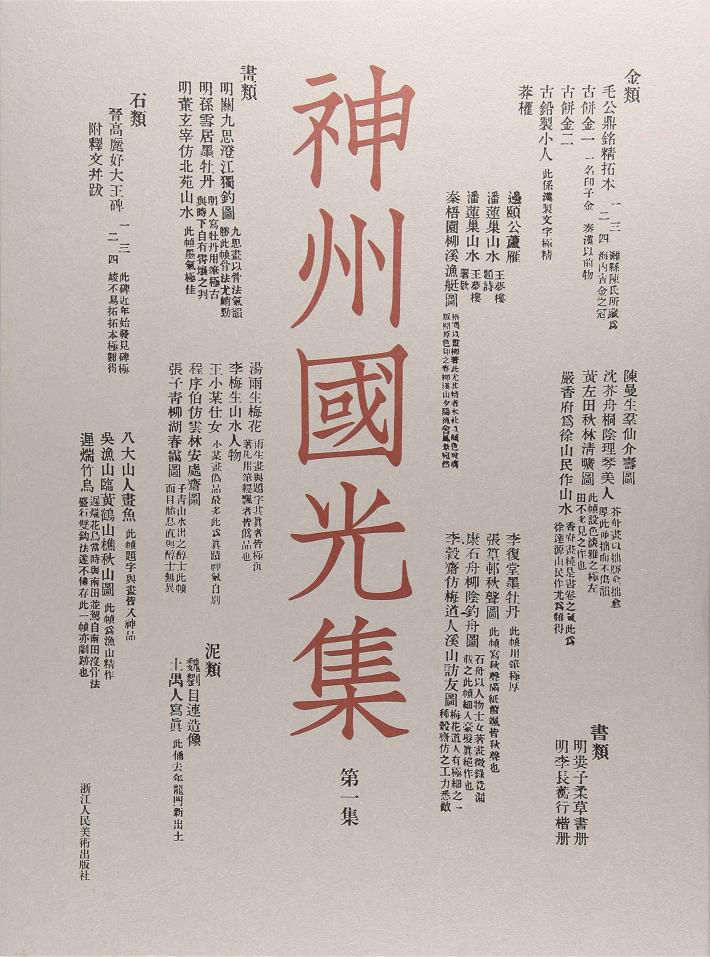 金類
毛公鼎銘精拓本 一 二 三 四 濰縣陳氏所藏爲海內吉金之冠
古餅金一 一名印子金 秦漢以前物
古餅金二
古鉛製小人 此係漢製文字極精
莽權
書類
明婁子柔草書册
明李長蘅行楷册
陳曼生羣仙介壽圖
沈芥舟桐陰理琴美人
黃左田秋林清曠圖 此幀設色淡雅之極左田不多見之作也
嚴香府爲徐山民作山水
李復堂墨牡丹 此幀用筆極厚
張篁邨秋聲圖 此幀寫秋聲滿紙蕭颯皆秋聲也
康石舟柳陰釣舟圖
李穀齋仿梅道人溪山訪友圖
邊頤公蘆雁
潘蓮巢山水 王夢樓題詩
潘蓮巢山水 王夢樓署款
秦梧園柳溪漁艇圖
神州國光集
第一集
書類
明關九思澄江獨釣圖 九思畫以骨法氣韻勝此幀骨法尤峭勁
明孫雪居墨牡丹 明人寫牡丹用筆極古與時下自有霄壤之判
明董玄宰仿北苑山水 此幀墨氣極佳
湯雨生梅花
李梅生山水人物
王小某仕女
程序伯仿雲林安處齋圖
張子青柳湖春靄圖
泥類
魏劉目連造像
土偶人寫眞 此俑去年龍門新出土
石類
晉高麗好大王碑 一 二 三 四 此碑近年始發見碑極峻不易拓拓本極難得
附釋文幷跋
八大山人畫魚 此幀題字與畫皆入神品
吳漁山臨黃鶴山樵秋山圖 此幀爲漁山精作
惲喘竹鳥
浙江人民美術出版社